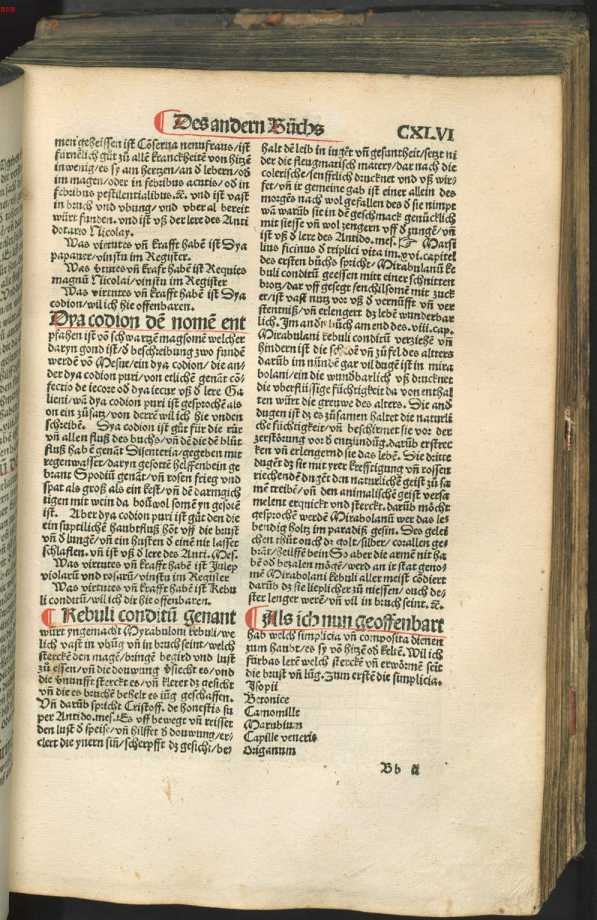 Des andern Büchs
CXLVI
men geheissen ist Cōserua nenufrans/ist
fürnēlich gůt zů allē kranckheitē von hitzē
inwenig/es sy am hertzen/an d lebern/od
im magen/oder in febribus acutis/od in
febribus pestilentialibus.⁊c. vnd ist vast
in bruch vnd vbung/vnd vber al bereit
würt funden. vnd ist vß der lere des Anti
dotario Nicolay.
Was virtutes vñ krafft habē ist Dya
papauer/vinstu im Register.
Was vtutes vñ kraft habē ist Requies
magnū Nicolai/vinstu im Register
Was virtutes vñ krafft habē ist Dya
codion/wil ich hie offenbaren.
Dya codion dē nomē ent
pfahen ist vō schwartzē magsomē welcher
daryn gond ist/d beschreibung zwo fundē
werdē vō Mesue/ein dya codion/die an-
der dya codion puri/von etlichē genāt cō-
fectio de iecore od dya iecur vß d lere Ga
lieni/wā dya codion puri ist gesprochē als
on ein zůsatz/von derrē wil ich hie vnden
schreibē. Dya codion ist gůt für die růr
vñ allen fluß des buchs/vñ dē die dē blůt
fluß habē genāt Disenteria/gegeben mit
regenwasser/daryn gesotē helffenbein ge
brant Spodiū genāt/vñ rosen frieg vnd
spat als groß als ein kest/vñ dē darmgich
tigen mit wein da boūwol somē yn gesotē
ist. Aber dya codion puri ist gůt den die
ein suptilichē haubtfluß hōt vff die brust
vñ d lungē/vñ ein husten d einē nit lasset
schlaffen. vñ ist vß d lere des Anti. Mes.
Was virtutes vñ krafft habē ist Julep
violarū vnd rosarū/vinstu im Register
Was virtutes vñ krafft habē ist Kebu
li conditū/wil ich dir hie offenbaren.
Kebuli conditū genant
würt yngemacht Myrabuloni kebuli/we
lich vast in vbūg vñ in bruch seint/welch
sterckē den magē/bringē begird vnd lust
zů essen/vñ die douwung vsicht es/vnd
die vnunfft sterckt es/vñ klerer dz gesicht
vñ die es bruchē behelt es iūg geschaffen.
Vñ darūb spricht Cristoff. de honestis su
per Antido.mes. Es vff bewegt vñ reisset
den lust d speise/vñ hilffet d douwung/er-
clert die ynern sin/scherpfft dz gesicht/be
halt dē leib in iugēt vñ gesuntheit/setzt ni
der die fleugmatisch matery/dar nach die
colerische/senfftlich drucknet vnd vß wir-
fet/vñ it gemeine gab ist einer allein des
morgēs nach wol gefallen des d sie nimpt
wā warūb sie in dē geschmack genücklich
mit siesse vñ wol zengern vff d zungē/vñ
ist vß d lere des Antido. mes. ☞ Marsi
lius ficinus d triplici vita im.xvi.capitel
des ersten büchs spricht/Mirabulanū ke
buli conditū geessen mit einer schnitten
brotz/dar vff gesegt fenchilsomē mit zuck
er/ist vast nutz vor vß d vernüfft vñ ver
stentniß/vñ erlengert dz lebē wunderbar
lich. Im andn büch am end des.viii.cap.
Mirabulani kebuli conditū verziehē vñ
hindern ist die vñ zůfel des alters
darūb im nūndē gar vil dugēt ist in mira
bolani/ein die wundbarlich vß drucknet
die vberflüssige füchtigkeit da von enthal
ten würt die grewe des alters. Die and
dugen ist dz es zůsamen haltet die naturli
che füchtigkeit/vñ beschirmet sie vor der
zerstörung vor d entzündūg. darūb ersterc
ken vñ erlengern d sie das lebē. Die dritte
dugēt dz sie mit yrer krefftigung vñ rossen
riechendē dinget den naturlichē geist zů sa
mē treibē/vñ den animalischē geist versa
melent erquickt vnd sterckt. darūb möcht
gesprochē werdē Mirabolanū wer das le
bendig holtz im paradiß gesin. Des gelei
chen thůt ouch dz golt/silber/corallen ge
brāt/helffē bein So aber die armē nit ha
bē od bezalen mögē/werd an ir stat geno-
mē Mirabolani kebuli aller meist cōdiert
darūb dz sie lieplicher zů niessen/ouch des-
ster lenger werē/vñ vil in bruch seint.⁊c.
Als ich nun geoffenbart
hab welch simplicia vñ composita dienen
zum haubt/es sy vō hitzē od kelte. Wil ich
fürbas lerē welch sterckē vñ erwörmē seit
die brust vñ lūg. Zum erstē die simplicia.
Isopü
Betonice
Camomille
Marubium
Capille veneris
Origanum
Bb ii